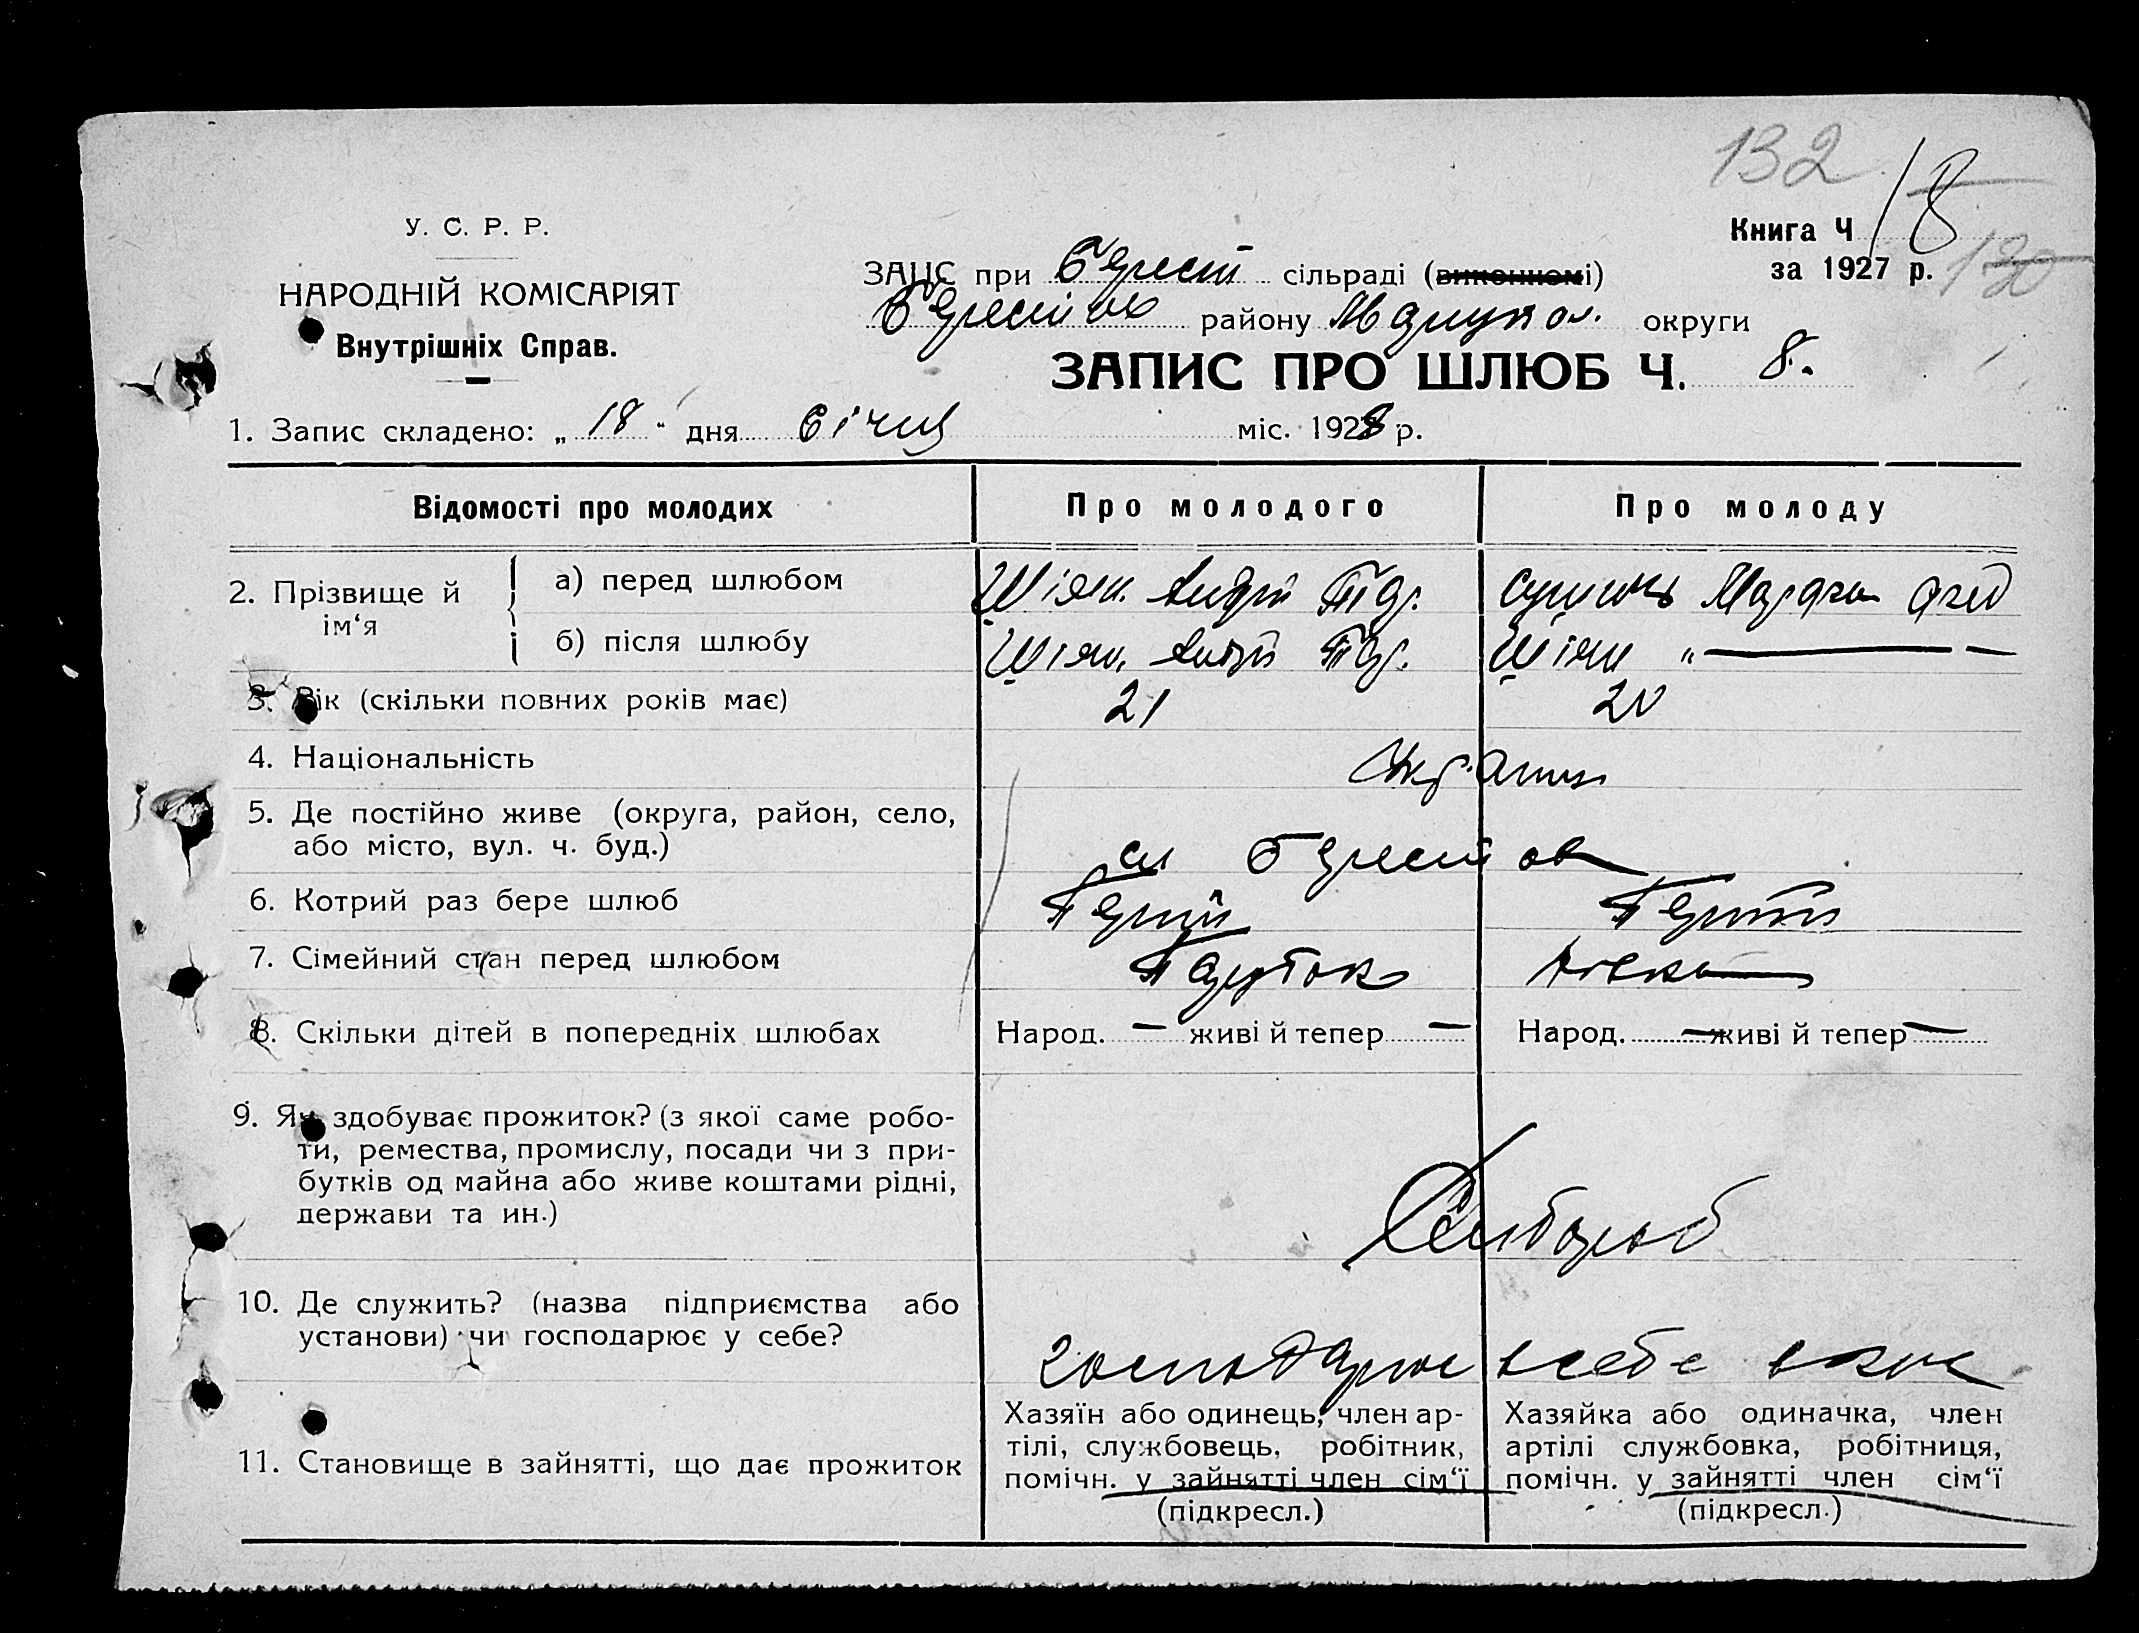 132
18
У. С. Р. Р.
Книга Ч
НАРОДНІЙ КОМІСАРІЯТ
ЗАЦС при Берест сільраді (виконкомі)
за 1927 р.
130
Внутрішніх Справ.
Берестов району Маріупол. округи
ЗАПИС ПРО ШЛЮБ Ч. 8.
1. Запис складено: „ 18 “ дня Січня міс. 1928 р.
Відомості про молодих
Про молодого
Про молоду
2. Прізвище й ім‘я
а) перед шлюбом
Шіян. Андрій
б) після шлюбу
Шіян. Андрій
Шіян " —
3. Вік (скільки повних років має)
21
20
4. Національність
Україниц
5. Де постійно живе (округа, район, село,
або місто, вул. ч. буд.)
с Берестов
6. Котрий раз бере шлюб
Перший
Перший
7. Сімейний стан перед шлюбом
Парубок
Дівка
8. Скільки дітей в попередніх шлюбах
Народ. — живі й тепер —
Народ. — живі й тепер —
9. Як здобуває прожиток? (з якої саме робо-
ти, ремества, промислу, посади чи з при-
бутків од майна або живе коштами рідні,
держави та ин.)
Хлібороб
10. Де служить? (назва підприємства або
установи) чи господарює у себе?
господарює в себе
11. Становище в зайнятті, що дає прожиток
Хазяїн або одинець, член ар-
тілі, службовець, робітник,
помічн. у зайнятті член сім‘ї
(підкресл.)
Хазяйка або одиначка, член
артілі службовка, робітниця,
помічн. у зайнятті член сім‘ї
(підкресл.)